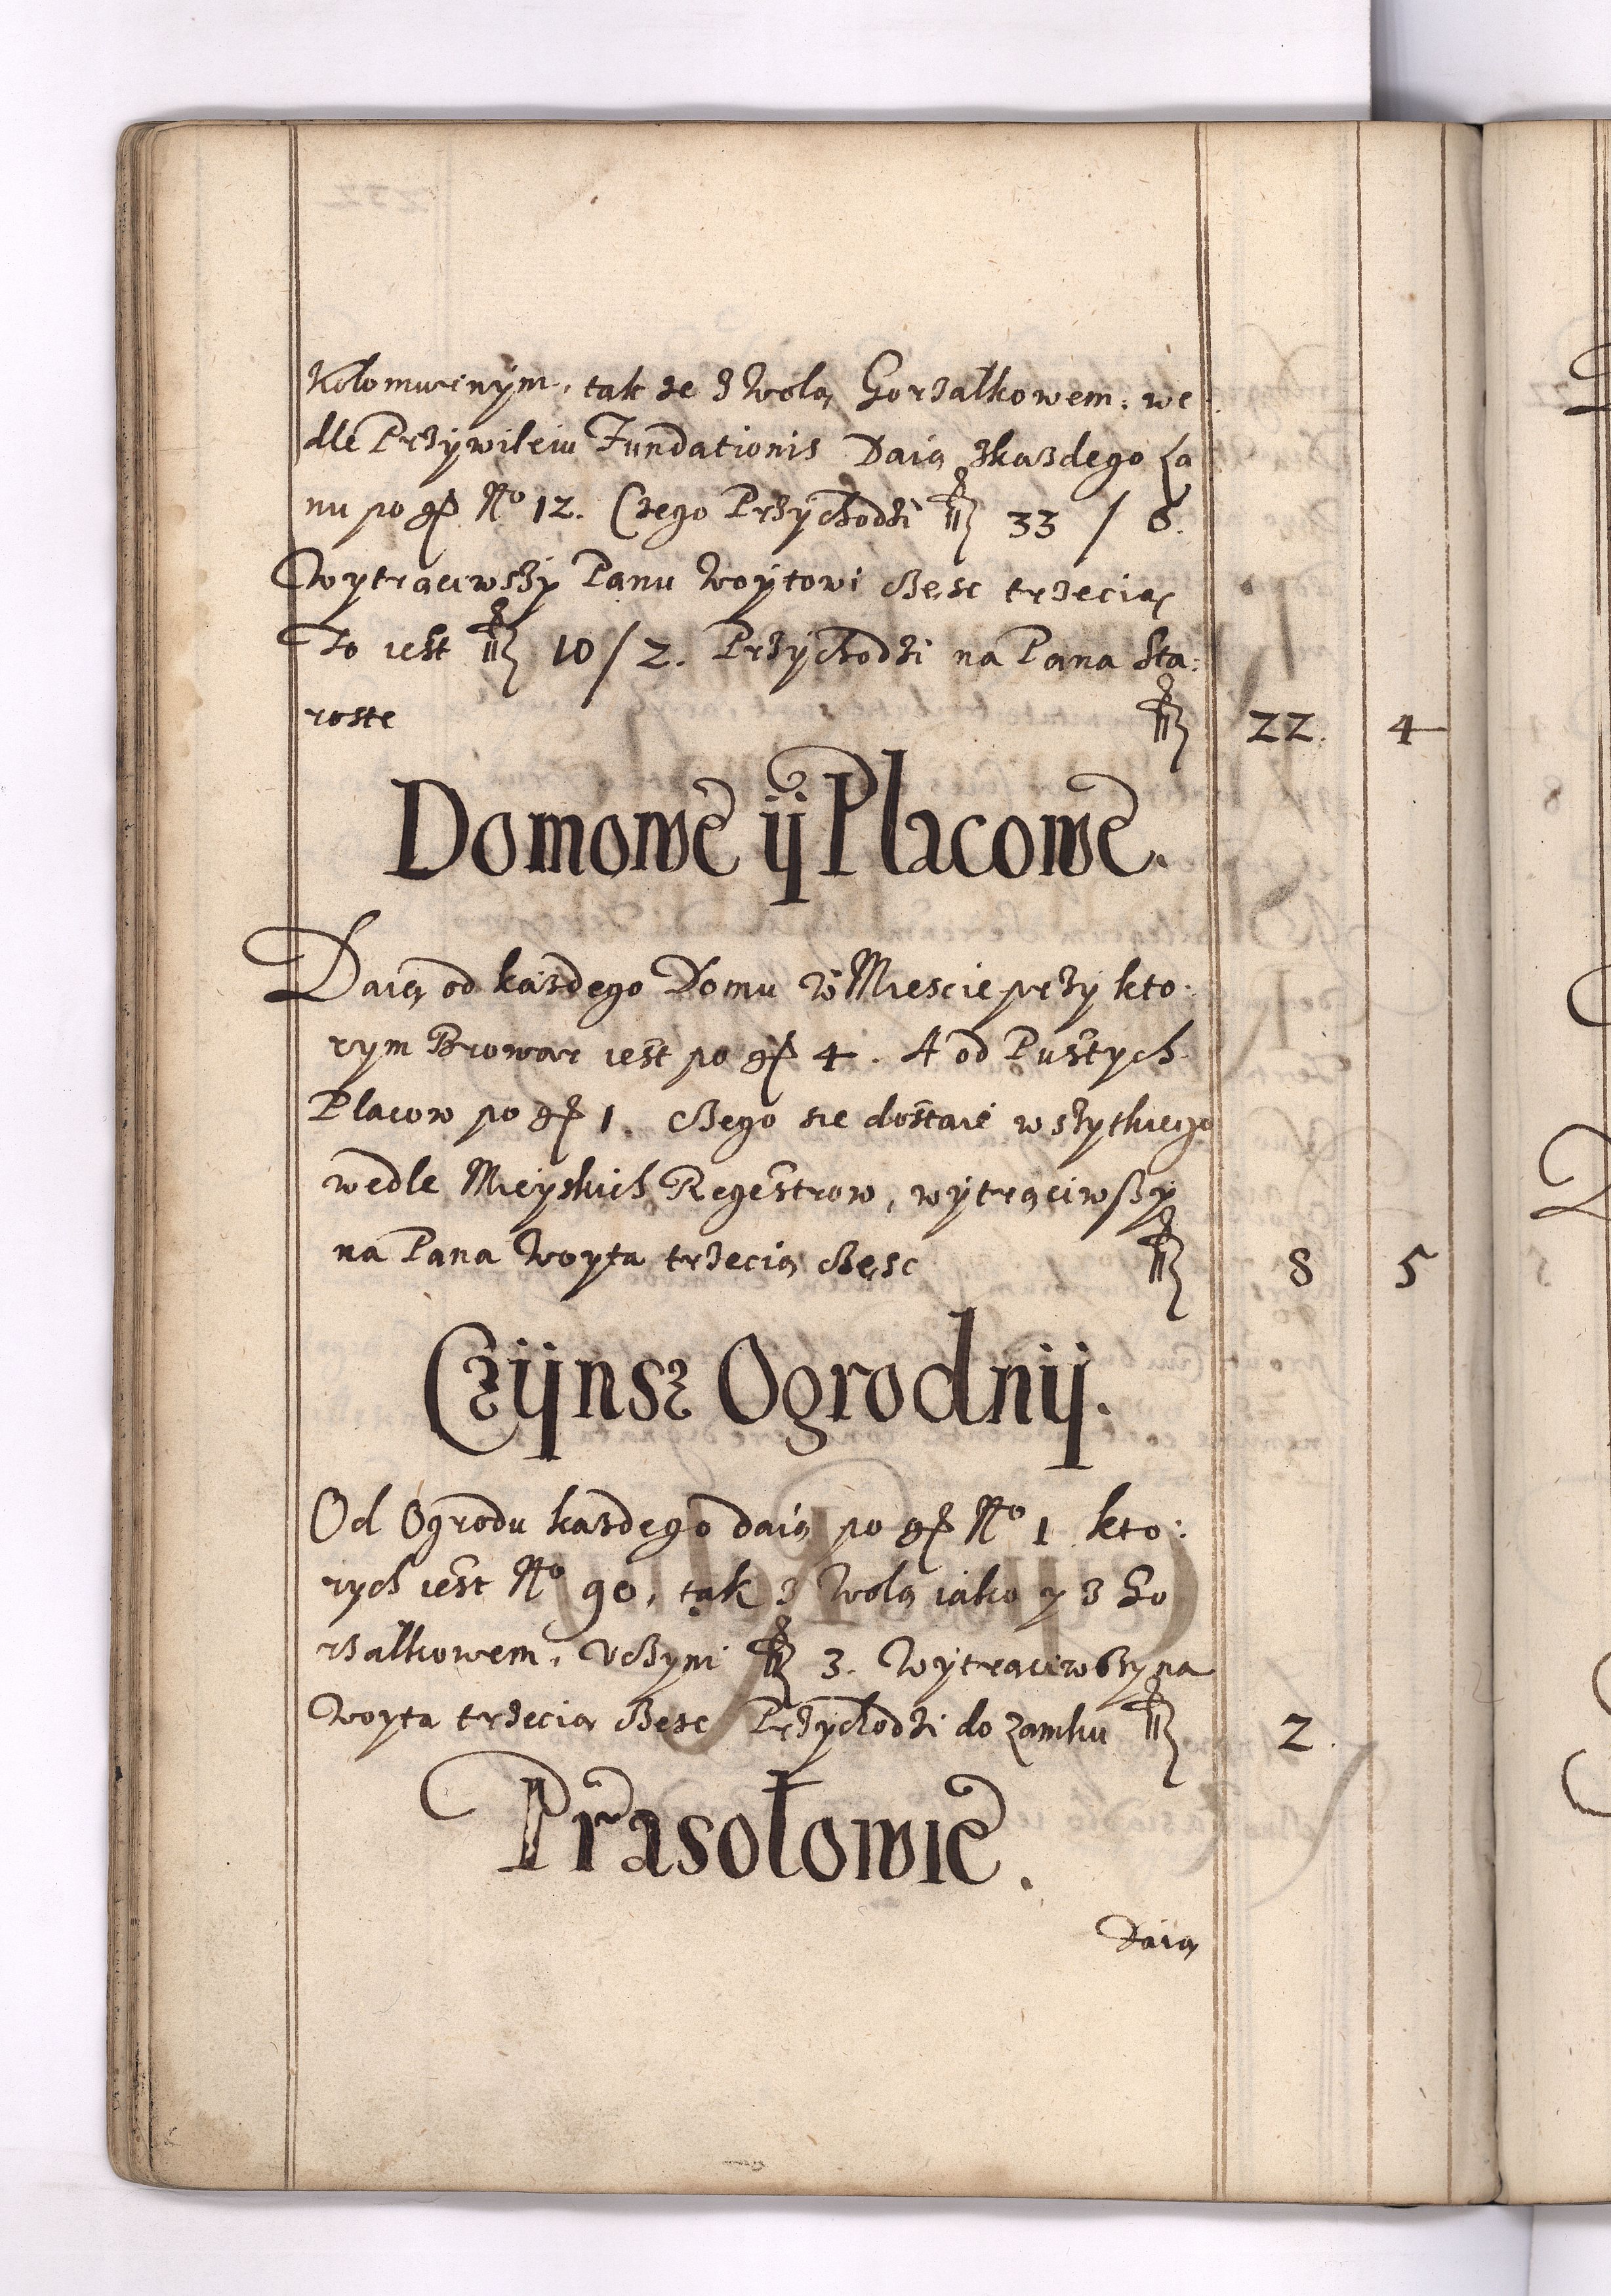 Kołomwinym, tak ze z Wolą Gorzałkowem. we
dle Przywileiu Fundationis Daią zkazdego Ła
nu po gr No 12. Czego Przychodzi fl 33 / 6.
Wytraciwszy Panu Woytowi częsc trzecią
To iest fl 10/2. Przychodzi na Pana Sta:
roste fl 22. 4
Domowe ÿ Placowe.
Daią od kazdego Domu w Miescie przy kto:
rym Browar iest po gr 4. A od Pustych
Placow po gr 1. Czego sie dostaie wszytkiego
wedle Mieyskich Regestrow, wytrąciwszy
na Pana Woyta trzecią częsc fl 8 5
Czÿnsz Ogrodnÿ.
Od Ogrodu kazdego daią po gr No 1 kto:
rych iest No 90, tak z Wolą iako y z Go
rzałkowem. Uczyni fl 3. Wytrąciwszy na
Woyta trzecią częsc Przychodzi do Zamku fl 2.
Prasołowie.
Daią